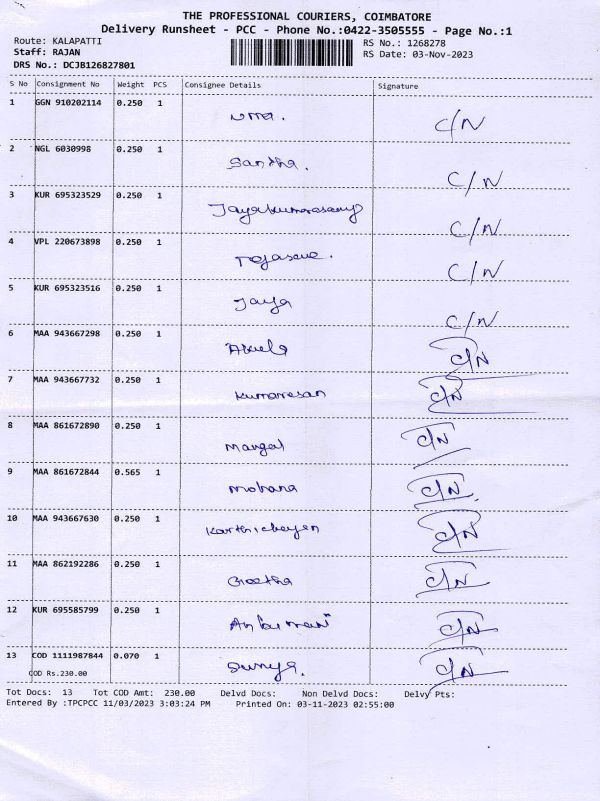 THE PROFESSIONAL COURIERS, COIMBATORE
Delivery Runsheet - PCC - Phone No.:0422-3505555 - Page No.:1
Route: KALAPATTI RS No.: 1268278
Staff: RAJAN RS Date: 03-Nov-2023
DRS No.: DCJB126827801
S No Consignment No Weight PCS Consignee Details Signature
1 GGN 910202114 0.250 1 Uma. C/N
2 NGL 6030998 0.250 1 Santha. C/N
3 KUR 695323529 0.250 1 Jayakumarasamy C/N
4 VPL 220673898 0.250 1 C/N
5 KUR 695323516 0.250 1 Jaya C/N
6 MAA 943667298 0.250 1 C/N
7 MAA 943667732 0.250 1 Kumaresan C/N
8 MAA 861672890 0.250 1 Mangal C/N
9 MAA 861672844 0.565 1 Mohana C/N
10 MAA 943667630 0.250 1 Karthickeyen C/N
11 MAA 862192286 0.250 1 Geetha C/N
12 KUR 695585799 0.250 1 C/N
13 COD 1111987844 0.070 1 Surya. C/N
COD Rs.230.00
Tot Docs: 13 Tot COD Amt: 230.00 Delvd Docs: Non Delvd Docs: Delvy Pts:
Entered By :TPCPCC 11/03/2023 3:03:24 PM Printed On: 03-11-2023 02:55:00